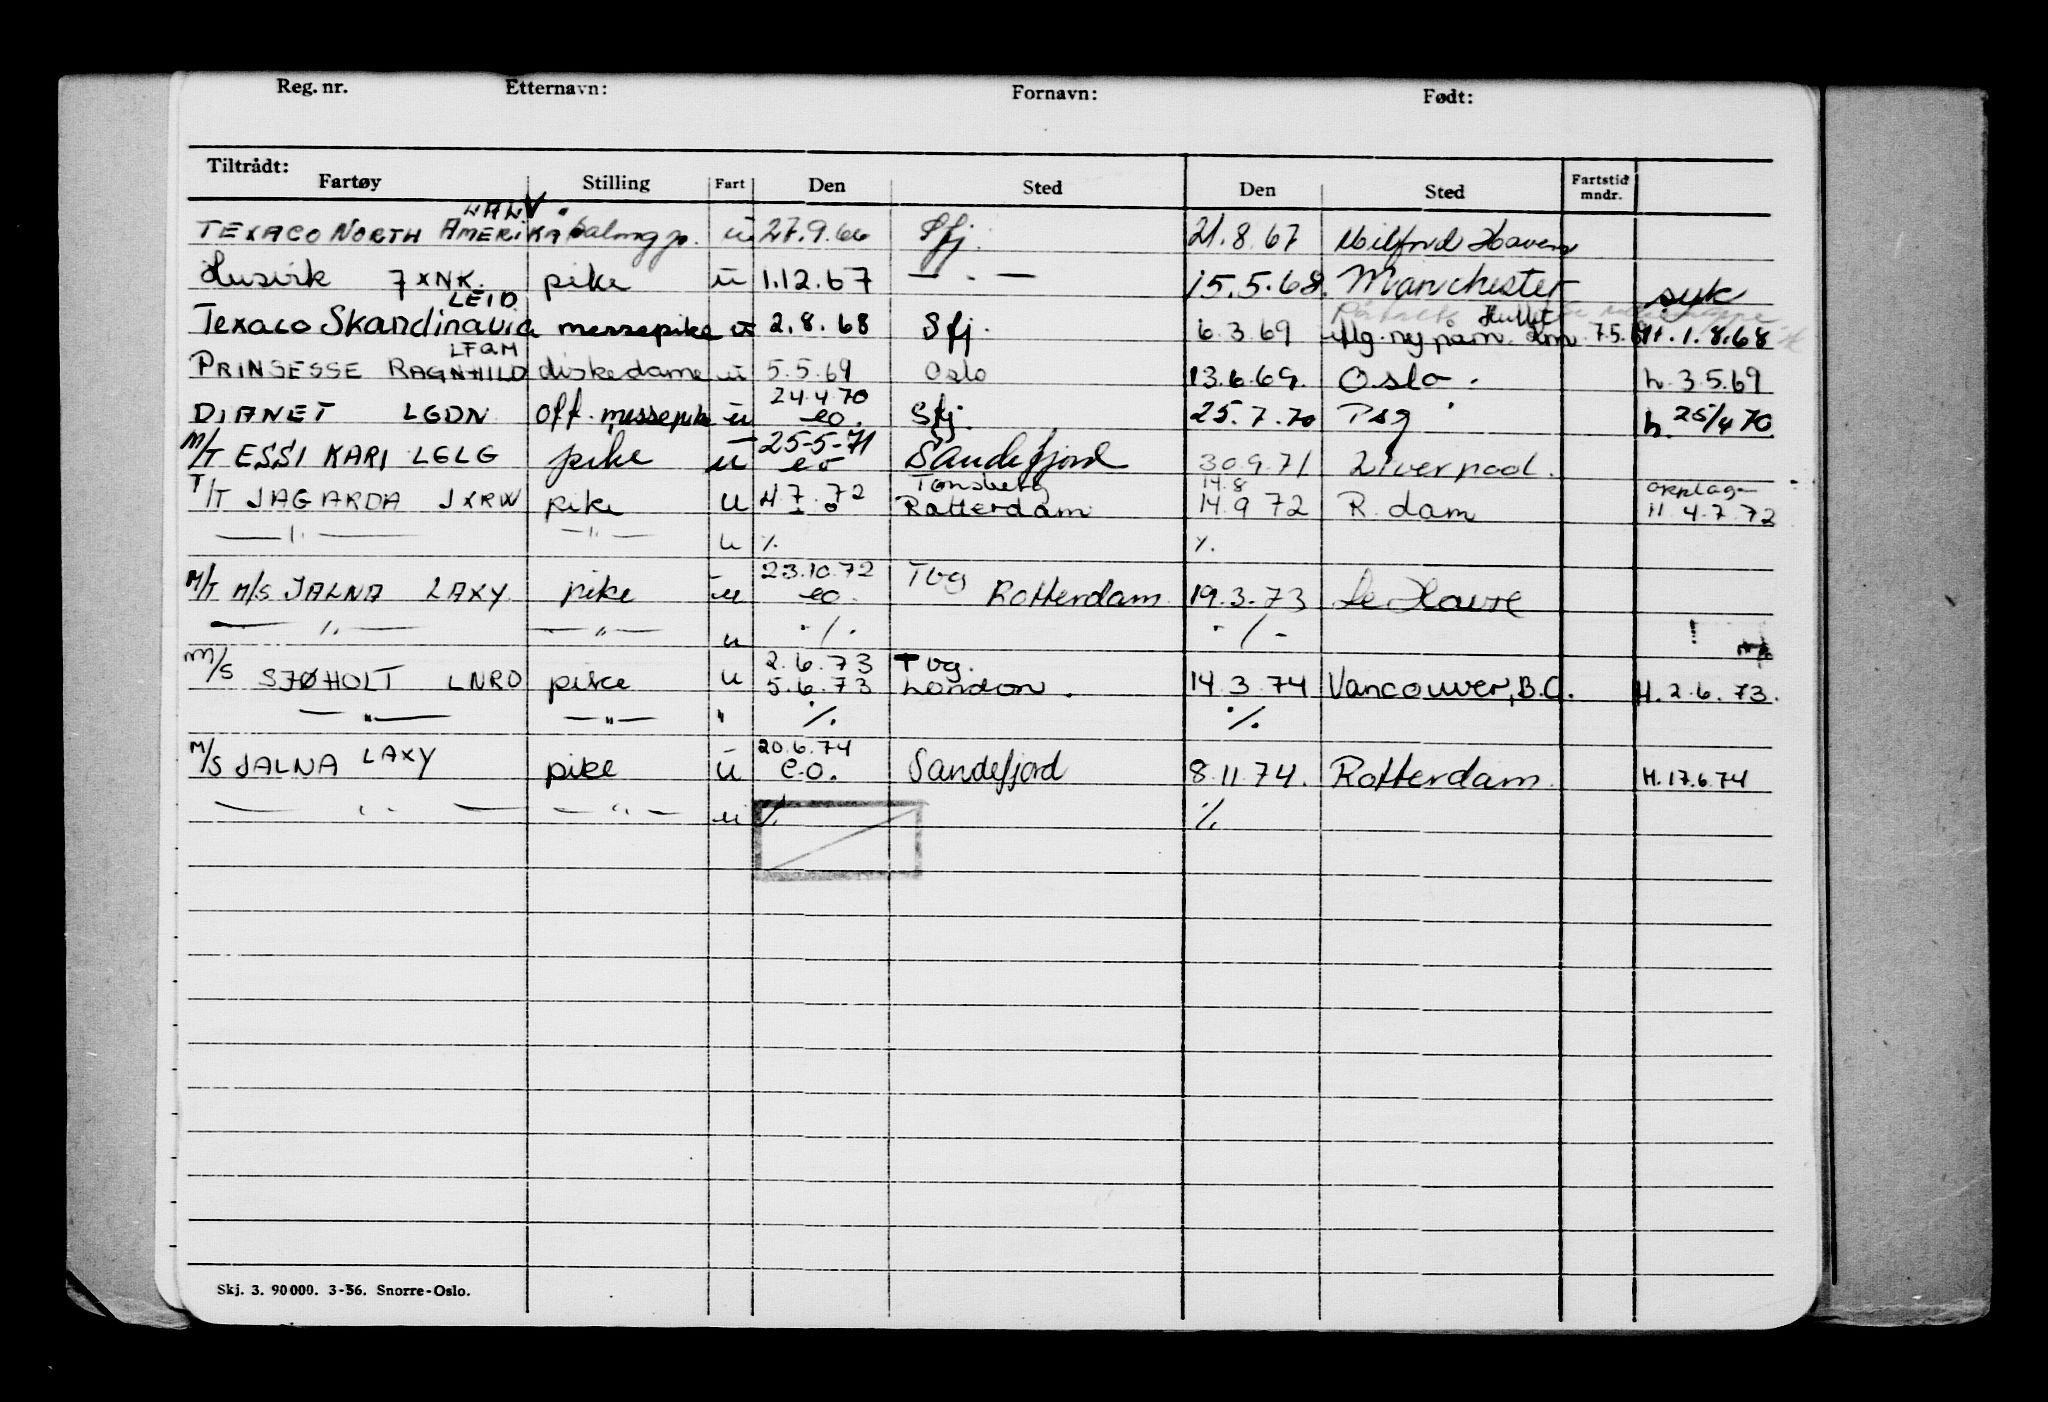 Reg. nr. Etternavn: Fornavn: Født:
Tiltrådt:
Fartøy Stilling Fart Den Sted Den Sted Fartstid mndr.
TEXACO NORTH AMERIKA salongp. u 27.9.66 Sfj. 21.8.67 Milford Haven
Husvik JXNK. pike u 1.12.67 — " — 15.5.68. Manchester syk
LEID
Texaco Skandinavia messepike u 2.8.68 Sfj. 6.3.69 Mg. ny påm. 7.5. H. 1.8.68
LFQM
PRINSESSE RAGNHILD diskedame u 5.5.69 Oslo 13.6.69. Oslo. h. 3.5.69
24.4.70
DIANET LGDN Off. messepike u eo. Sfj. 25.7.70 Psg h. 25/4 70
25-5-71
M/T ESSI KARI LGLG pike u eo Sandefjord 30.9.71 Liverpool.
Tønsberg 14.8 opplag
T/T JAGARDA JXRW pike u 4.7.72 Rotterdam 14.9 72 R. dam H. 4.7.72
— " — — " — u %. %.
23.10.72 Tbg
M/T M/S JALNA LAXY pike u eo. Rotterdam 19.3.73 Le Havre
— " — — " — u ./. ./.
2.6.73 Tbg.
M/S SJØHOLT LNRD pike u 5.6.73 London. 14.3.74 Vancouver, B.C. H. 2.6.73.
— " — — " — " %. %.
20.6.74
M/S JALNA LAXY pike u e.o. Sandefjord 8.11.74. Rotterdam H. 17.6.74
— " — — " — u %. %.
Skj. 3. 90000. 3-56. Snorre-Oslo.